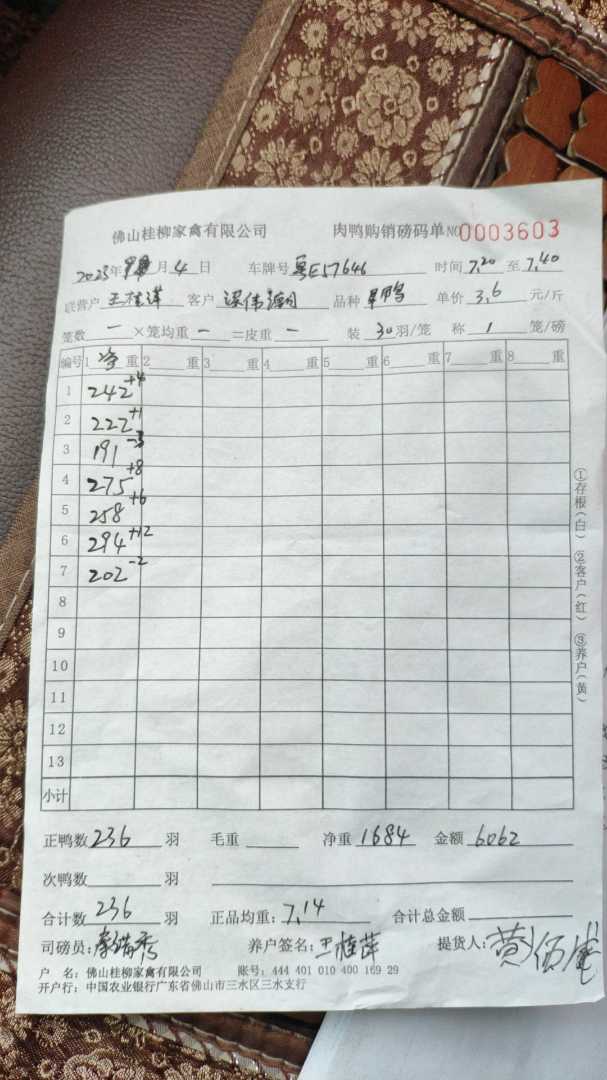 佛山桂柳家禽有限公司 肉鸭购销磅码单 NO 0003603
2023年 月 4 日 车牌号 粤E57646 时间 7,20 至 7,40
联营户 王桂萍 客户 梁伟 品种 鸭 单价 3,6 元/斤
笼数 一 ×笼均重 一 =皮重 一 装 30 羽/笼 称 1 笼/磅
编号 1 净 重 2 重 3 重 4 重 5 重 6 重 7 重 8 重
1 242 +4
2 222 +1
3 191 -3
4 275 +8
5 258 +6
6 294 +12
7 202 -2
8
9
10
11
12
13
小计
①存根(白) ②客户(红) ③养户(黄)
正鸭数 236 羽 毛重 净重 1684 金额 6062
次鸭数 羽
合计数 236 羽 正品均重: 7,14 合计总金额
司磅员: 养户签名: 王桂萍 提货人: 黄
户 名: 佛山桂柳家禽有限公司 账号: 444 401 010 400 169 29
开户行: 中国农业银行广东省佛山市三水区三水支行